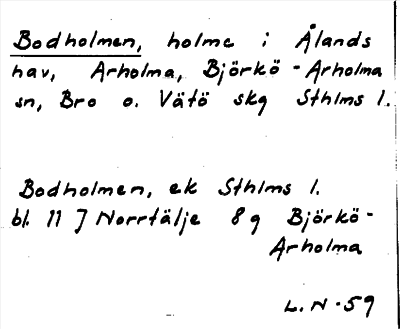 Bodholmen, holme i Ålands
hav, Arholma, Björkö-Arholma
sn, Bro o. Vätö skg Sthlms l.
Bodholmen, ek Sthlms l.
bl. 11 J Norrtälje 8 g Björkö-
Arholma
L.N-59